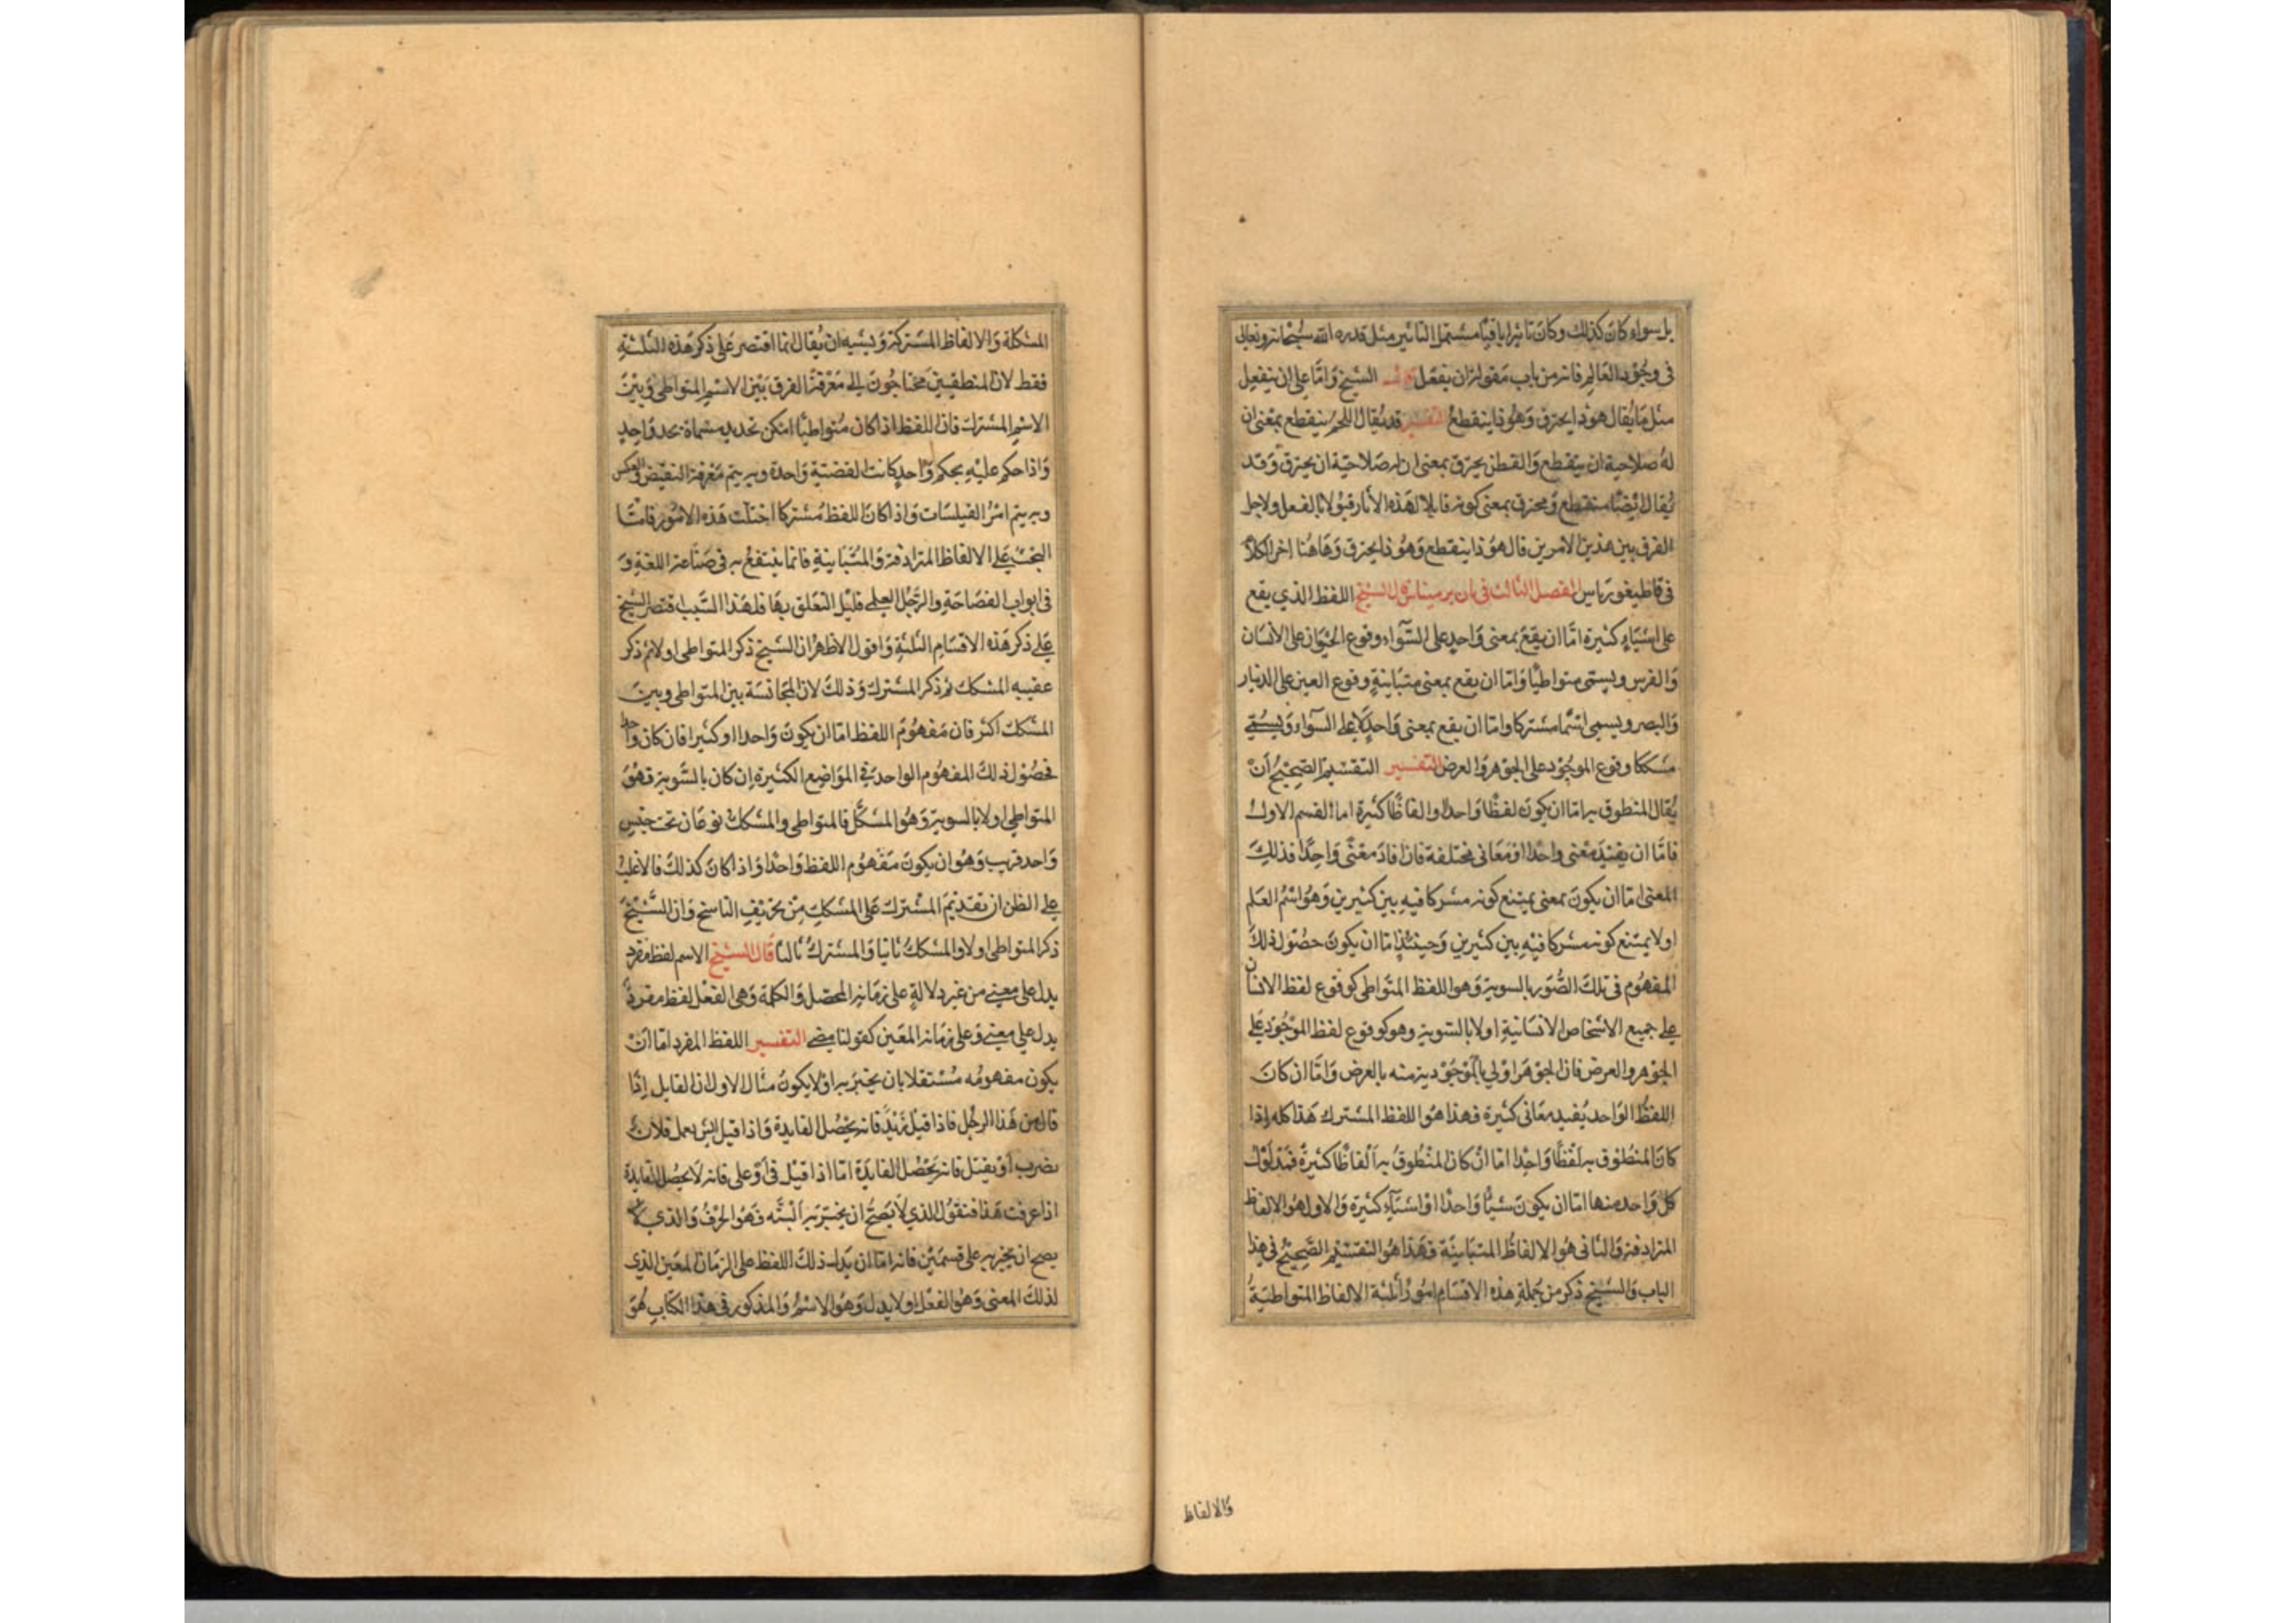 بل سواء كان كذلك وكان تاثيرا باقيا مستمر التاثير مثل قدره الله سبحانه وتعالى
فى وجود العالم فانه من باب مقولة ان يفعل الشيخ واما على ان ينفعل
مثل ما يقال هو ذا يحترق وهو ذا ينقطع التفسير قد يقال اللحم ينقطع بمعنى ان
له صلاحية ان ينقطع والقطن يحترق بمعنى ان له صلاحية ان يحترق وقد
يقال ايضا منقطع ومحترق بمعنى كونه قابلا لهذه الاثار قبولا بالفعل ولاجل
الفرق بين هذين الامرين قال هو ذا ينقطع وهو ذا يحترق وهاهنا اخر الكلام
فى قاطيغورياس الفصل الثالث فى بارىرميناس قال الشيخ اللفظ الذي يقع
على اشياء كثيرة اما ان يقع بمعنى واحد على السواء وقوع الحيوان على الانسان
والفرس ويسمى متواطيا واما ان يقع بمعنى متباينة وقوع العين على الدينار
والبصر ويسمى اسما مشتركا واما ان يقع بمعنى واحد لا على السواء ويسمى
مشككا وقوع الموجود على الجوهر والعرض التفسير التقسيم الصحيح ان
يقال المنطوق به اما ان يكون لفظا واحدا او الفاظا كثيرة اما القسم الاول
فاما ان يفيد معنى واحدا او معانى مختلفة فان افاد معنى واحدا فذلك
المعنى اما ان يكون بمعنى يمتنع كونه مشركا فيه بين كثيرين وهو اسم العلم
او لا يمتنع كونه مشركا فيه بين كثيرين وحينئذ اما ان يكون حصول ذلك
المفهوم فى تلك الصور بالسوية وهو اللفظ المتواطى كوقوع لفظ الانسان
على جميع الاشخاص الانسانية او لا بالسوية وهو كوقوع لفظ الموجود على
الجوهر والعرض فان الجوهر اولى بالموجودية منه بالعرض واما ان كان
اللفظ الواحد يفيد معانى كثيرة فهذا هو اللفظ المشترك هذا كله اذا
كان المنطوق به لفظا واحدا اما ان كان المنطوق به الفاظا كثيرة فمدلول
كل واحد منها اما ان يكون شيئا واحدا او اشياء كثيرة والاول هو الالفاظ
المترادفة والثانى هو الالفاظ المتباينة فهذا هو التقسيم الصحيح فى هذا
الباب والشيخ ذكر من جملة هذه الاقسام امورا ثلثة الالفاظ المتواطئية
والالفاظ
المشككة والالفاظ المشتركة ويشبه ان يقال انما اقتصر على ذكر هذه الثلثة
فقط لان المنطقيين محتاجون الى معرفة الفرق بين الاسم المتواطى وبين
الاسم المشترك فان اللفظ اذا كان متواطيا امكن تحديد مسماه بحد واحد
واذا حكم عليه بحكم واحد كانت القضية واحدة وبه يتم معرفة النقيض والعكس
وبه يتم امر القياسات واذا كان اللفظ مشتركا اختلت هذه الامور فاما
البحث على الالفاظ المترادفة والمتباينة فانما ينتفع به فى صناعة اللغة و
فى ابواب الفصاحة والرجل العلمى قليل التعلق بها فلهذا السبب اقتصر الشيخ
على ذكر هذه الاقسام الثلثة واقول الاظهر ان الشيخ ذكر المتواطى اولا ثم ذكر
عقيبه المشكك ثم ذكر المشترك وذلك لان المجانسة بين المتواطى وبين
المشكك اكثر فان مفهوم اللفظ اما ان يكون واحدا او كثيرا فان كان واحدا
فحصول ذلك المفهوم الواحد فى المواضع الكثيرة ان كان بالسوية فهو
المتواطى او لا بالسوية وهو المشكك فالمتواطى والمشكك نوعان تحت جنس
واحد قريب وهو ان يكون مفهوم اللفظ واحدا واذا كان كذلك فالاغلب
على الظن ان تقديم المشترك على المشكك من تحريف الناسخ وان الشيخ
ذكر المتواطى اولا والمشكك ثانيا والمشترك ثالثا قال الشيخ الاسم لفظ مفرد
يدل على معنى من غير دلالة على زمانه المحصل والكلمة وهى الفعل لفظ مفرد
يدل على معنى وعلى زمانه المعين كقولنا مضى التفسير اللفظ المفرد اما ان
يكون مفهومه مستقلا بان يخبر به او لا يكون مثال الاول ان القايل اذا
قال من هذا الرجل فاذا قيل زيد فانه يحصل الفايدة واذا قيل ايش يعمل فلان
يضرب او يقتل فانه يحصل الفايدة اما اذا قيل فى او على فانه لا يحصل الفايدة
اذا عرفت هذا فنقول الذي لا يصح ان يخبر به البته فهو الحرف والذي
يصح ان يخبر به على قسمين فانه اما ان يدل ذلك اللفظ على الزمان المعين الذي
لذلك المعنى وهو الفعل او لا يدل وهو الاسم والمذكور فى هذا الكتاب هو